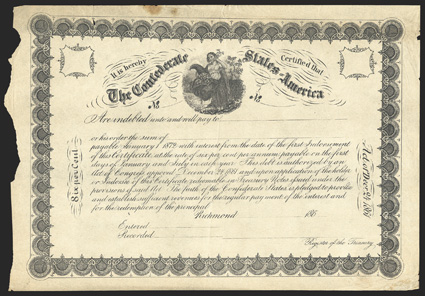 It is hereby Certified that
The Confederate States of America
No No
Are indebted unto and will pay to
or his order the sum of
payable January 1 1872 with interest from the date of the first Endorsement
of this Certificate, at the rate of six per cent per annum payable on the first
days of January and July in each year. This debt is authorized by an
Act of Congress approved December 24 1861 and upon application of the holder
or Indorsee of this Certificate redeemable in Treasury Notes issued under the
provisions of said Act. The faith of the Confederate States is pledged to provide
and establish sufficient revenues for the regular payment of the interest and
for the redemption of the principal.
Richmond 186
Entered
Recorded
Register of the Treasury
Six per Cent